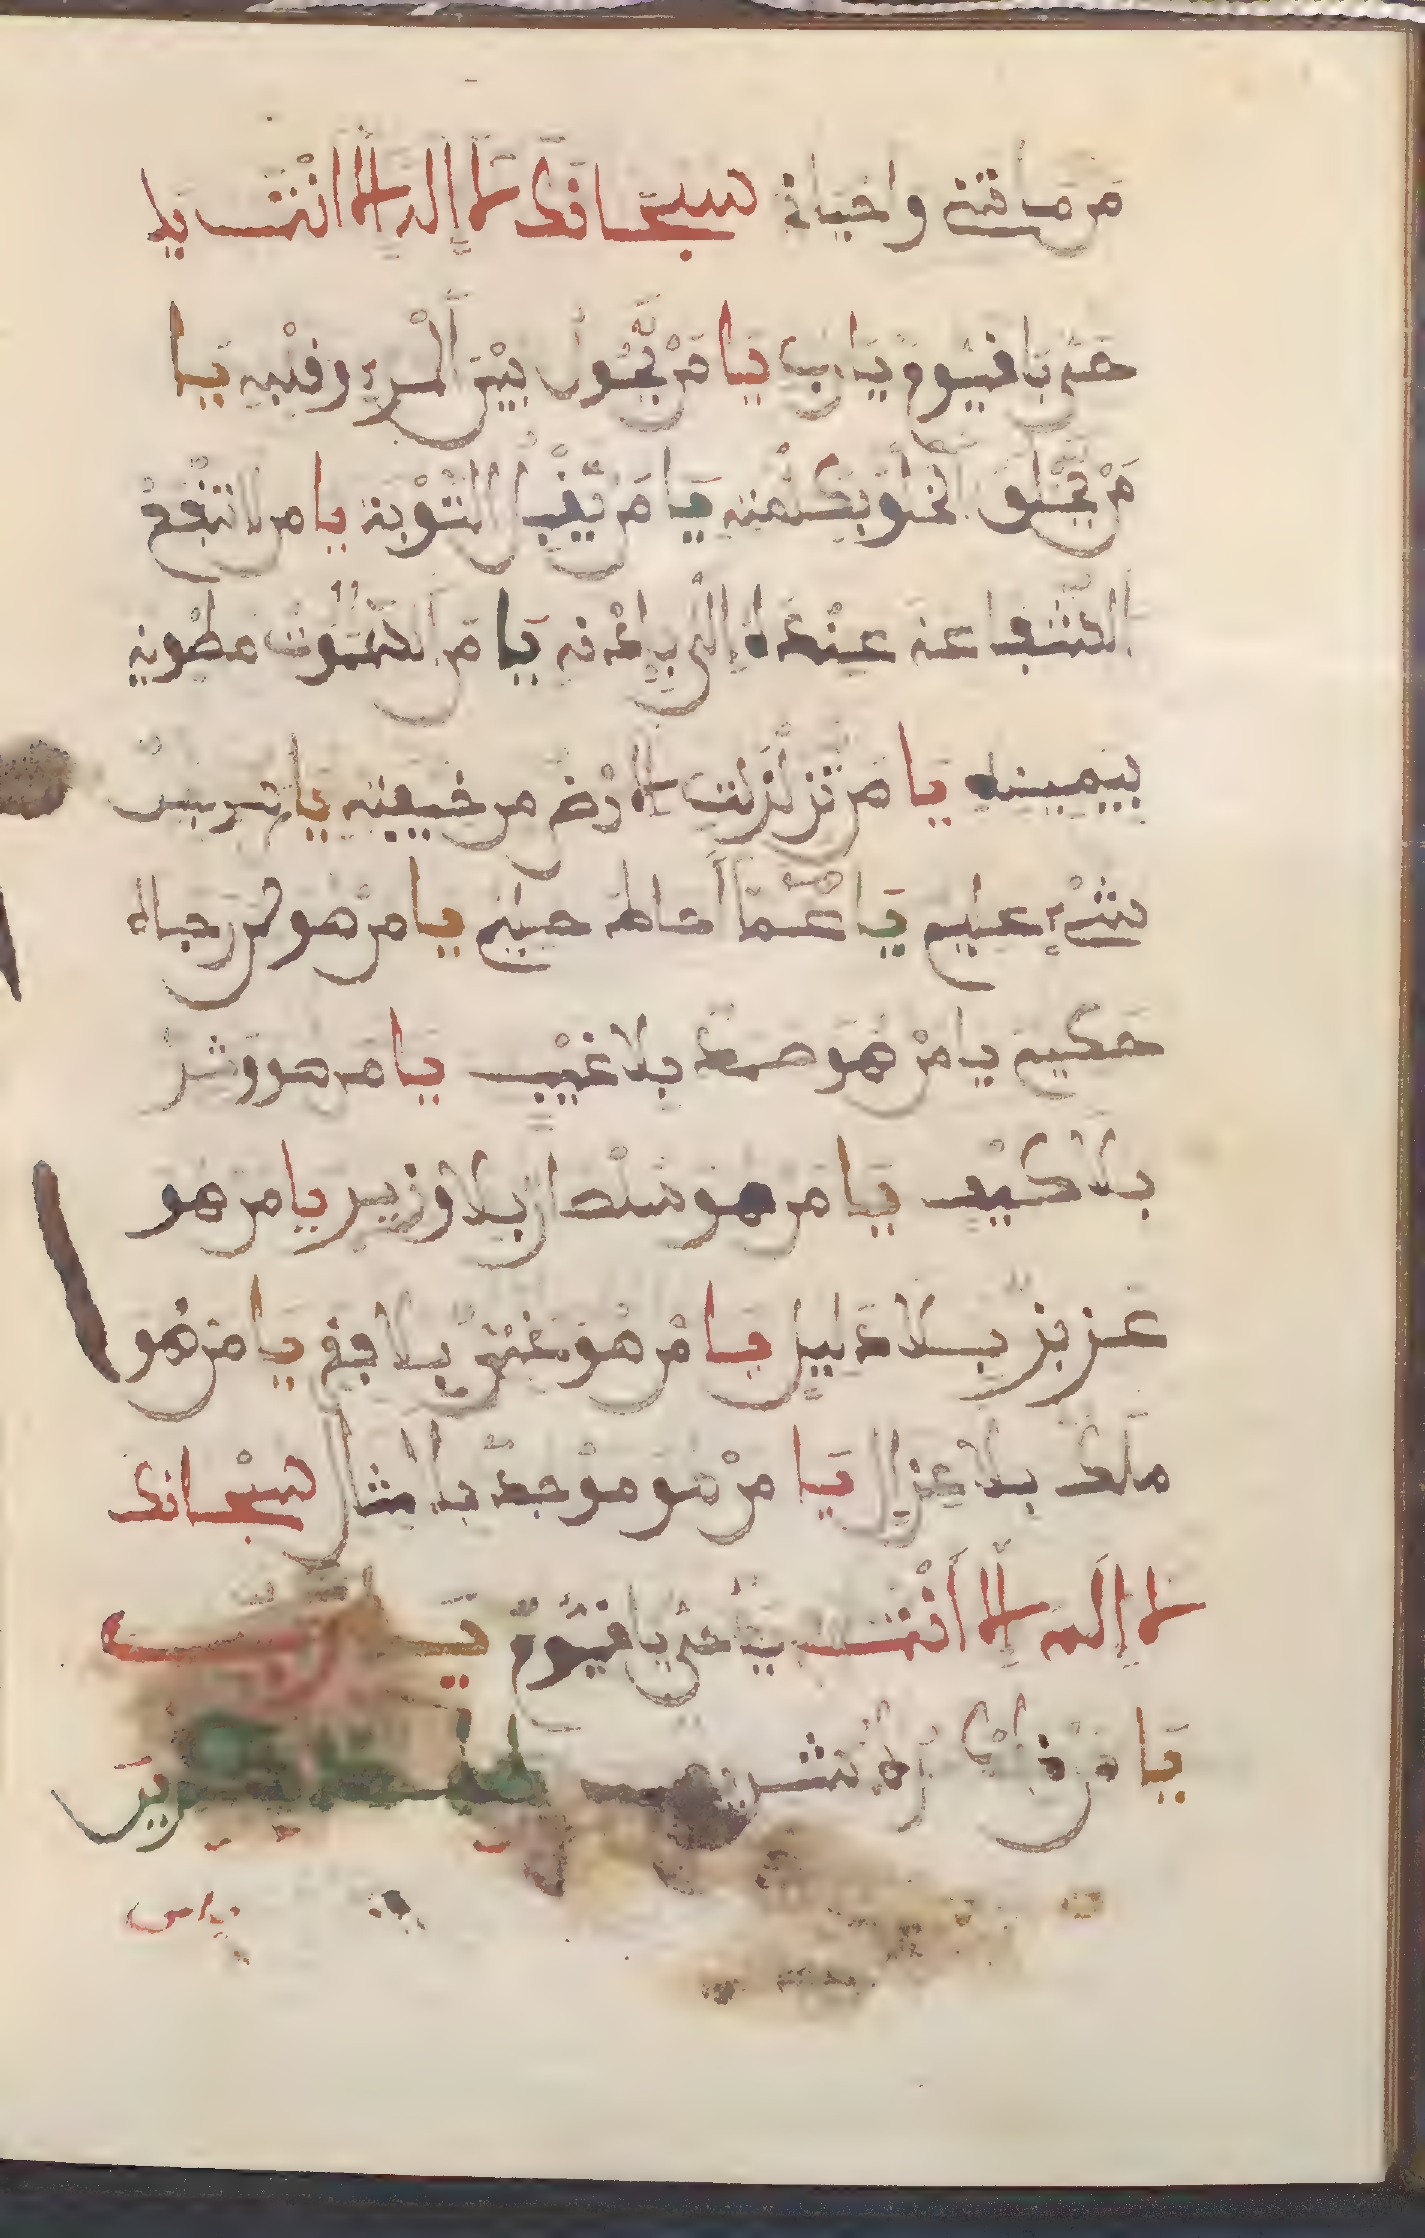 من مماتنى واحياه سبحانك لا اله الا انت يا
حي يا فيوم يا رب يا من يحول بين المرء وفلبه يا
من يخلق الخلق بكلمته يا من يفبل التوبة يا من لا تنفع
الشفاعة عنده الا باذنه يا من السموت مطوية
بيمينه يا من تزلزلت الارض من خيفته يا من بكل
شيء عليم يا من احاط علمه يا من هو لمن رجاه
حكيم يا من هو صمد بلا غيب يا من هو وتر
بلا كيف يا من هو سلطان بلا وزير يا من هو
عزيز بلا دليل يا من هو غني بلا فقر يا من هو
ملك بلا عزل يا من هو موجد بلا مثال سبحانك
لا اله الا انت يا حي يا فيوم يا رب
يا من
يا من